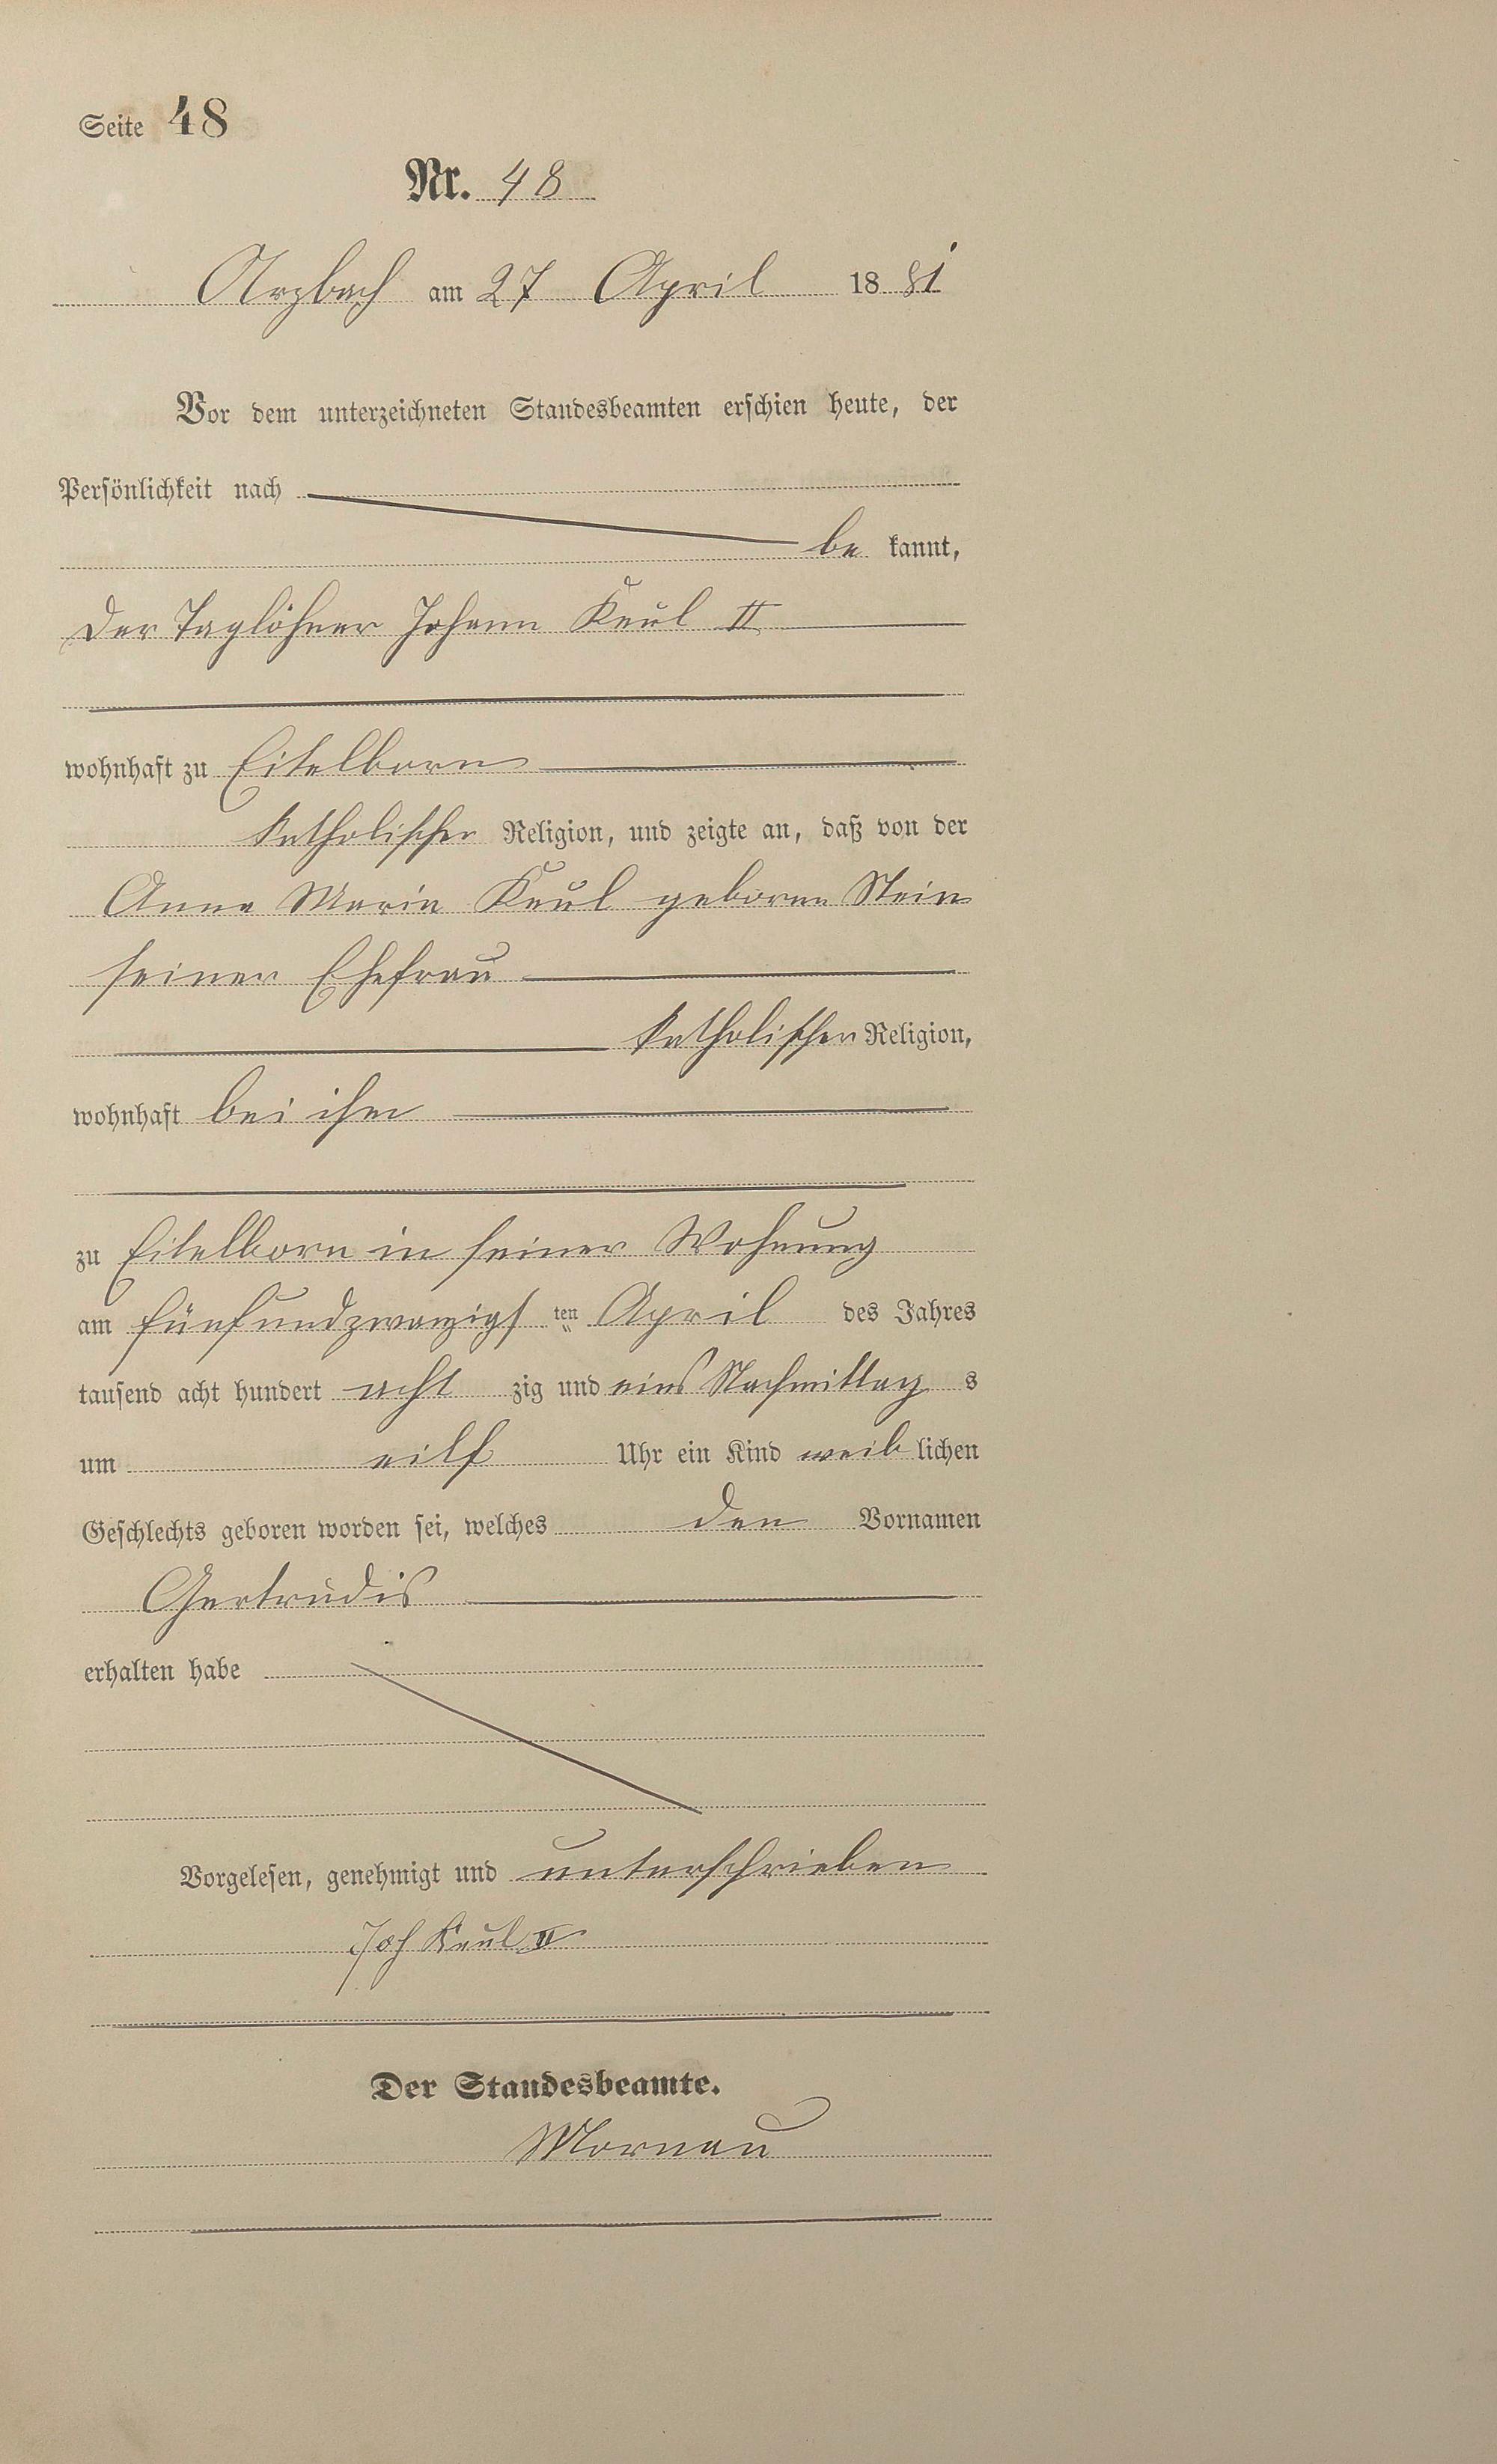 Seite 48
Nr. 48
Arzbach am 27 April 1881
Vor dem unterzeichneten Standesbeamten erschien heute, der
Persönlichkeit nach
be kannt,
der Taglöhner Johann Keul II
wohnhaft zu Eitelborn
katholischer Religion, und zeigte an, daß von der
Anna Maria Keul geborne Stein
seiner Ehefrau
katholischer Religion,
wohnhaft bei ihm
zu Eitelborn in seiner Wohnung
am fünfundzwanzigsten April des Jahres
tausend acht hundert acht zig und eins Nachmittag s
um eilf Uhr ein Kind weib lichen
Geschlechts geboren worden sei, welches den Vornamen
Gertrudis
erhalten habe
Vorgelesen, genehmigt und unterschrieben
Joh Keul II
Der Standesbeamte.
Mornau